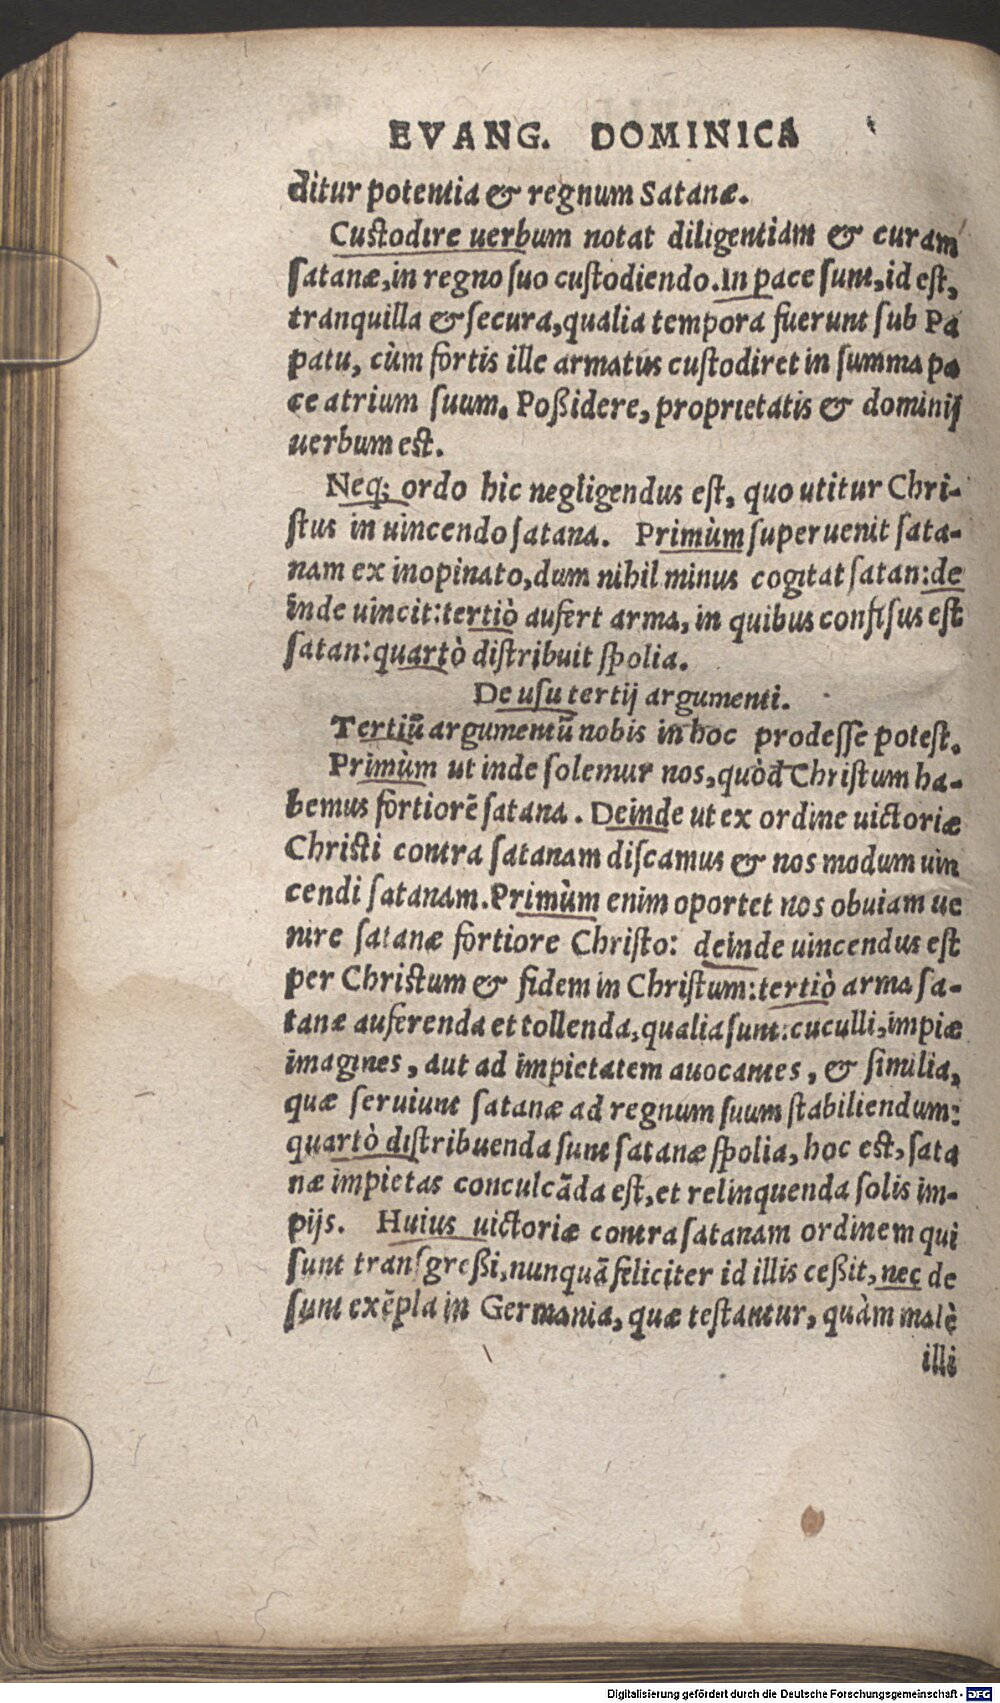 EVANG. DOMINICA
ditur potentia & regnum Satanæ.
Custodire uerbum notat diligentiam & curam
satanæ, in regno suo custodiendo. In pace sunt, id est,
tranquilla & secura, qualia tempora fuerunt sub Pa
patu, cùm fortis ille armatus custodiret in summa pa
ce atrium suum. Poßidere, proprietatis & dominij
uerbum est.
Neq; ordo hic negligendus est, quo utitur Chri-
stus in uincendo satana. Primùm superuenit sata-
nam ex inopinato, dum nihil minus cogitat satan: de
inde uincit: tertiò aufert arma, in quibus confisus est
satan: quartò distribuit spolia.
De usu tertij argumenti.
Tertiũ argumentũ nobis in hoc prodesse potest.
Primùm ut inde solemur nos, quòd Christum ha-
bemus fortiorẽ satana. Deinde ut ex ordine uictoriæ
Christi contra satanam discamus & nos modum uin
cendi satanam. Primùm enim oportet nos obuiam ue
nire satanæ fortiore Christo: deinde uincendus est
per Christum & fidem in Christum: tertiò arma sa-
tanæ auferenda et tollenda, qualia sunt: cuculli, impiæ
imagines, aut ad impietatem auocantes, & similia,
quæ seruiunt satanæ ad regnum suum stabiliendum:
quartò distribuenda sunt satanæ spolia, hoc est, sata
næ impietas conculcãda est, et relinquenda solis im-
pijs. Huius uictoriæ contra satanam ordinem qui
sunt transgreßi, nunquã feliciter id illis ceßit, nec de
sunt exẽpla in Germania, quæ testantur, quàm malè
illi
Digitalisierung gefördert durch die Deutsche Forschungsgemeinschaft - DFG